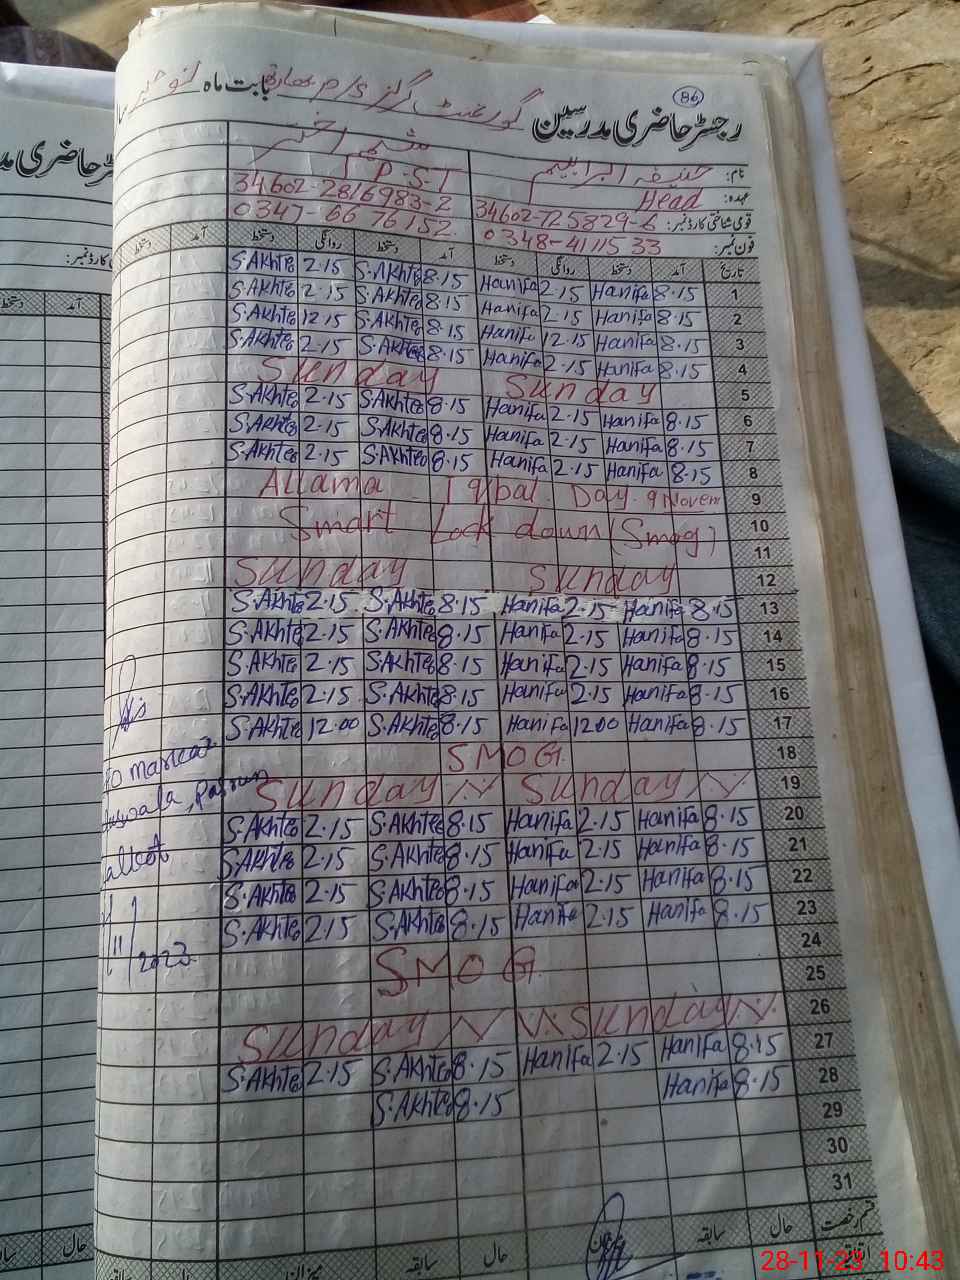 86
رجسٹر حاضری مدرسین گورنمنٹ گرلز P/S بابت ماہ نومبر
نام: حنیفہ ابراہیم شمیم اختر
عہدہ: Head P.S.T
قومی شناختی کارڈ نمبر: 34602-725829-6 34602-2816983-2
فون نمبر: 0348-4111533 0347-6676152
تاریخ آمد دستخط روانگی دستخط آمد دستخط روانگی دستخط آمد دستخط
S.Akhter 2.15 S.Akhter 8.15 Hanifa 2.15 Hanifa 8.15 1
S.Akhter 2.15 S.Akhter 8.15 Hanifa 2.15 Hanifa 8.15 2
S.Akhter 12.15 S.Akhter 8.15 Hanifa 12.15 Hanifa 8.15 3
S.Akhter 2.15 S.Akhter 8.15 Hanifa 2.15 Hanifa 8.15 4
Sunday Sunday 5
S.Akhter 2.15 S.Akhter 8.15 Hanifa 2.15 Hanifa 8.15 6
S.Akhter 2.15 S.Akhter 8.15 Hanifa 2.15 Hanifa 8.15 7
S.Akhter 2.15 S.Akhter 8.15 Hanifa 2.15 Hanifa 8.15 8
Allama Iqbal Day 9 Novem 9
Smart Lock down (Smog) 10
11
Sunday Sunday 12
S.Akhter 2.15 S.Akhter 8.15 Hanifa 2.15 Hanifa 8.15 13
S.Akhter 2.15 S.Akhter 8.15 Hanifa 2.15 Hanifa 8.15 14
S.Akhter 2.15 S.Akhter 8.15 Hanifa 2.15 Hanifa 8.15 15
S.Akhter 2.15 S.Akhter 8.15 Hanifa 2.15 Hanifa 8.15 16
S.Akhter 12.00 S.Akhter 8.15 Hanifa 1200 Hanifa 8.15 17
SMOG. 18
Sunday Sunday 19
S.Akhter 2.15 S.Akhter 8.15 Hanifa 2.15 Hanifa 8.15 20
S.Akhter 2.15 S.Akhter 8.15 Hanifa 2.15 Hanifa 8.15 21
S.Akhter 2.15 S.Akhter 8.15 Hanifa 2.15 Hanifa 8.15 22
S.Akhter 2.15 S.Akhter 8.15 Hanifa 2.15 Hanifa 8.15 23
24
SMOG. 25
Sunday Sunday 26
S.Akhter 2.15 S.Akhter 8.15 Hanifa 2.15 Hanifa 8.15 27
S.Akhter 8.15 Hanifa 8.15 28
29
30
31
11/2023
قسم رخصت حال سابقہ میزان حال سابقہ
اتفاقیہ
28-11-23 10:43